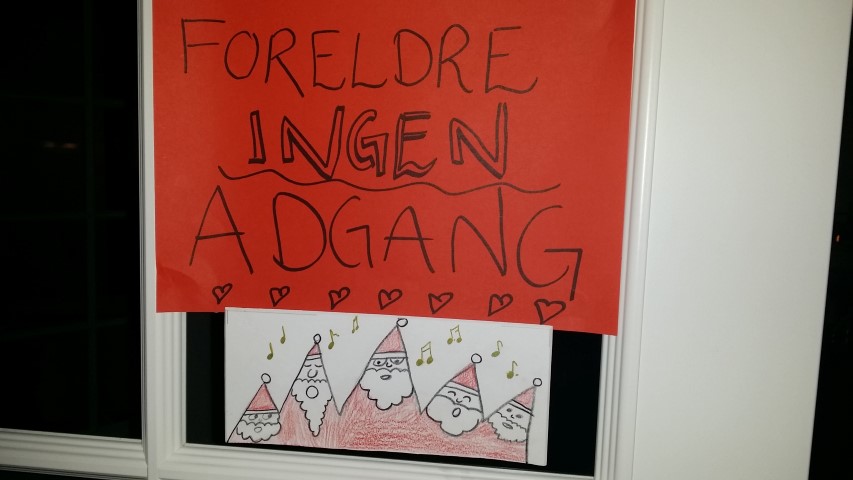 FORELDRE
INGEN
ADGANG